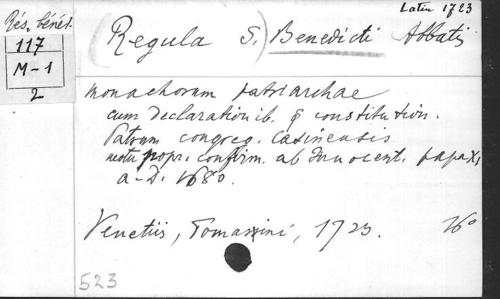 Latin 1723
Rés. bénéd.
117
M-1
2
(Regula S.) Benedicti Abbatis
monachorum patriarchae
cum declarationib. & constitution.
Patrum congreg. Casinensis
motu propr. confirm. ab Innocent. papa XI
a. D. 1680.
Venetiis, Tomasini, 1723. 16°
523